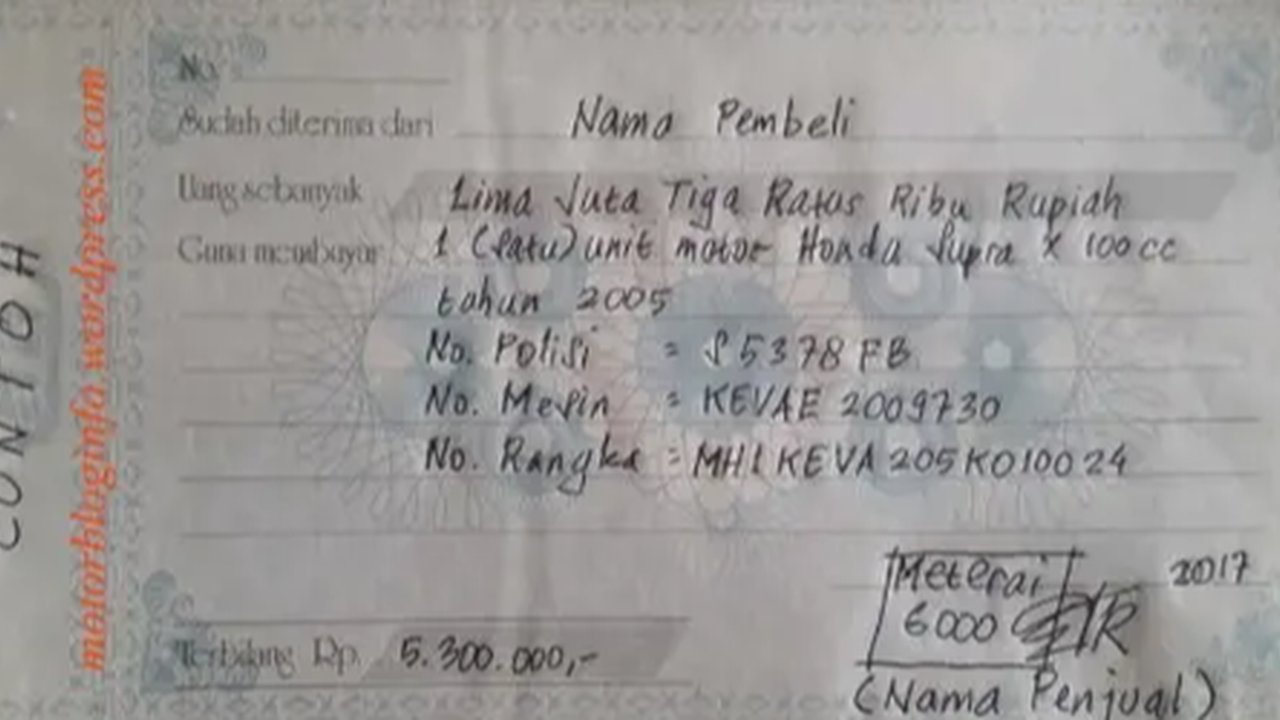 CONTOH
motorbloginfo.wordpress.com
No.
Sudah diterima dari Nama Pembeli
Uang sebanyak Lima Juta Tiga Ratus Ribu Rupiah
Guna membayar 1 (Satu) unit motor Honda Supra X 100 cc
tahun 2005
No. Polisi = S 5378 FB
No. Mesin = KEVAE 2009730
No. Rangka = MH1KEVA205K010024
Meterai 2017
6000
Terbilang Rp. 5.300.000,-
(Nama Penjual)